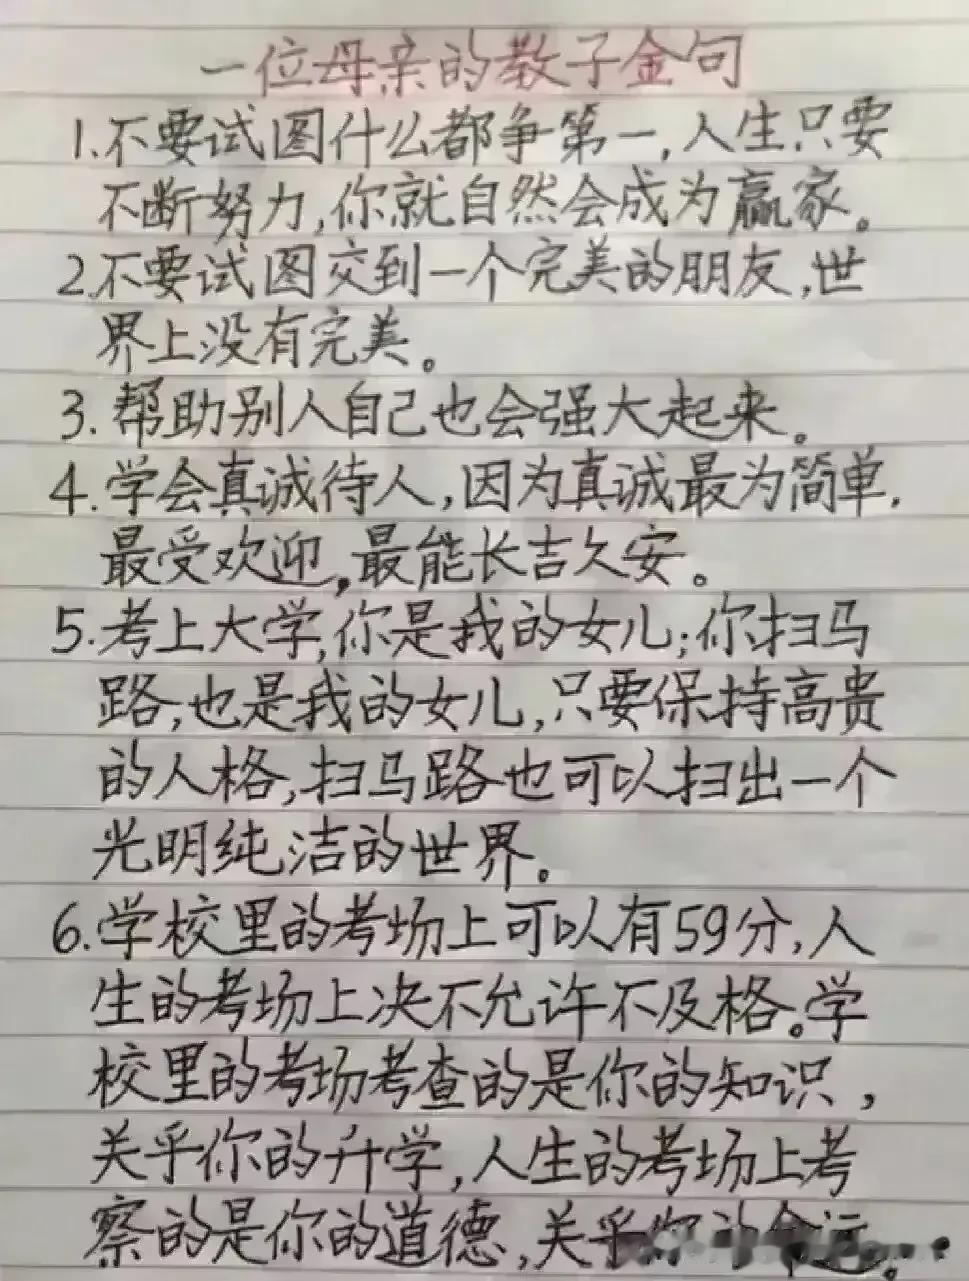 一位母亲的教子金句
1.不要试图什么都争第一,人生只要
不断努力,你就自然会成为赢家。
2.不要试图交到一个完美的朋友,世
界上没有完美。
3.帮助别人自己也会强大起来。
4.学会真诚待人,因为真诚最为简单,
最受欢迎,最能长吉久安。
5.考上大学,你是我的女儿;你扫马
路,也是我的女儿,只要保持高贵
的人格,扫马路也可以扫出一个
光明纯洁的世界。
6.学校里的考场上可以有59分,人
生的考场上决不允许不及格。学
校里的考场考查的是你的知识,
关乎你的升学,人生的考场上考
察的是你的道德,关乎你的